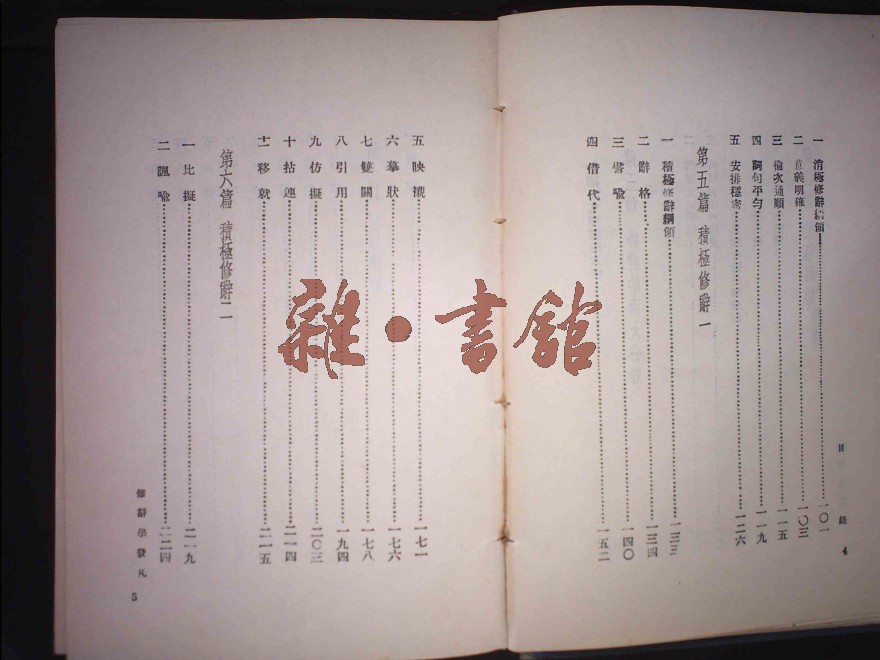 目錄
一 消極修辭綱領 一〇一
二 意義明確 一〇三
三 倫次通順 一一五
四 詞句平勻 一一九
五 安排穩密 一二六
第五篇 積極修辭一
一 積極修辭綱領 一三三
二 辭格 一三四
三 譬喩 一四〇
四 借代 一五二
4
五 映襯 一七一
六 摹狀 一七六
七 雙關 一七八
八 引用 一九四
九 仿擬 二〇三
十 拈連 二一四
十一 移就 二一五
第六篇 積極修辭二
一 比擬 二一九
二 諷喩 二二四
修辭學發凡
5
雜·書館